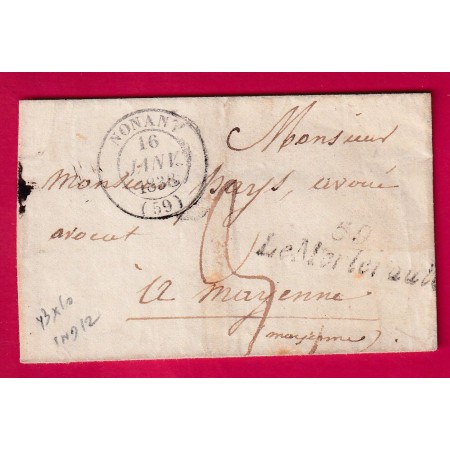 NONANT
16
JANV.
1838
(59)
Monsieur
Monsieur Pays, avoué
avocat
59
Le Merlerault
à mayenne
(mayenne)
43x10
IND12